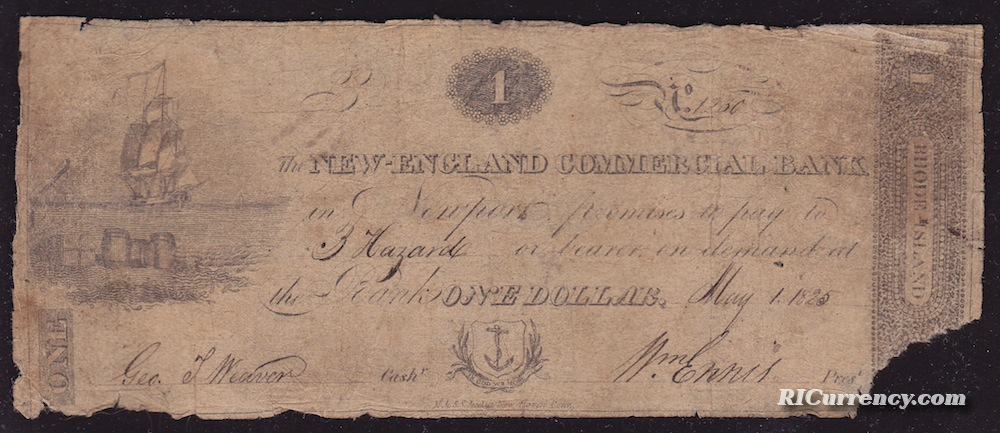 B
1
No. 1250
The NEW-ENGLAND COMMERCIAL BANK
in Newport promises to pay to
B Hazard or bearer on demand at
the Bank ONE DOLLAR. May 1. 1825
ONE
Geo. T Weaver Cashr.
Wm Ennis Prest.
1
RHODE ISLAND
RICurrency.com